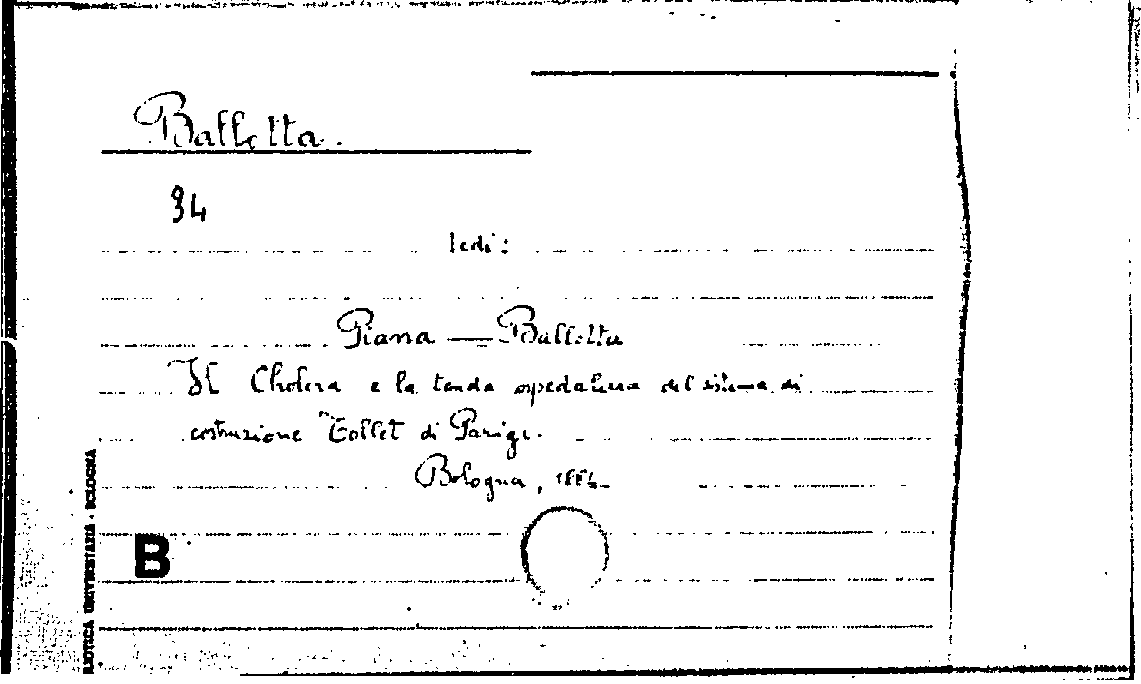 Balletta.
34
Vedi:
Piana — Balletta
Il Cholera e la tenda ospedaliera del sistema di
costruzione Tollet di Parigi.
Bologna, 1884
B
BIBLIOTECA UNIVERSITARIA - BOLOGNA